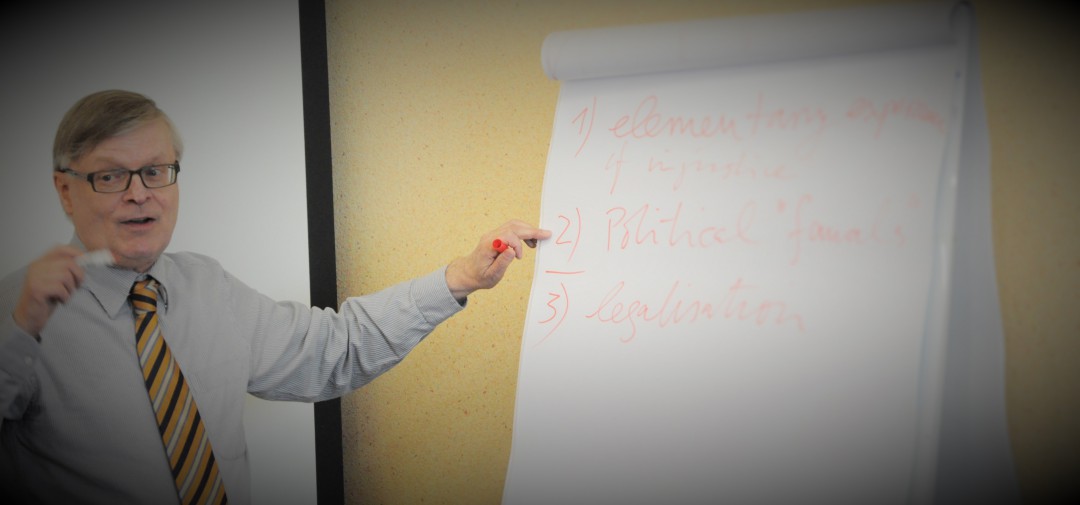 1) elementary
of injustice
2) Political
3) legalisation